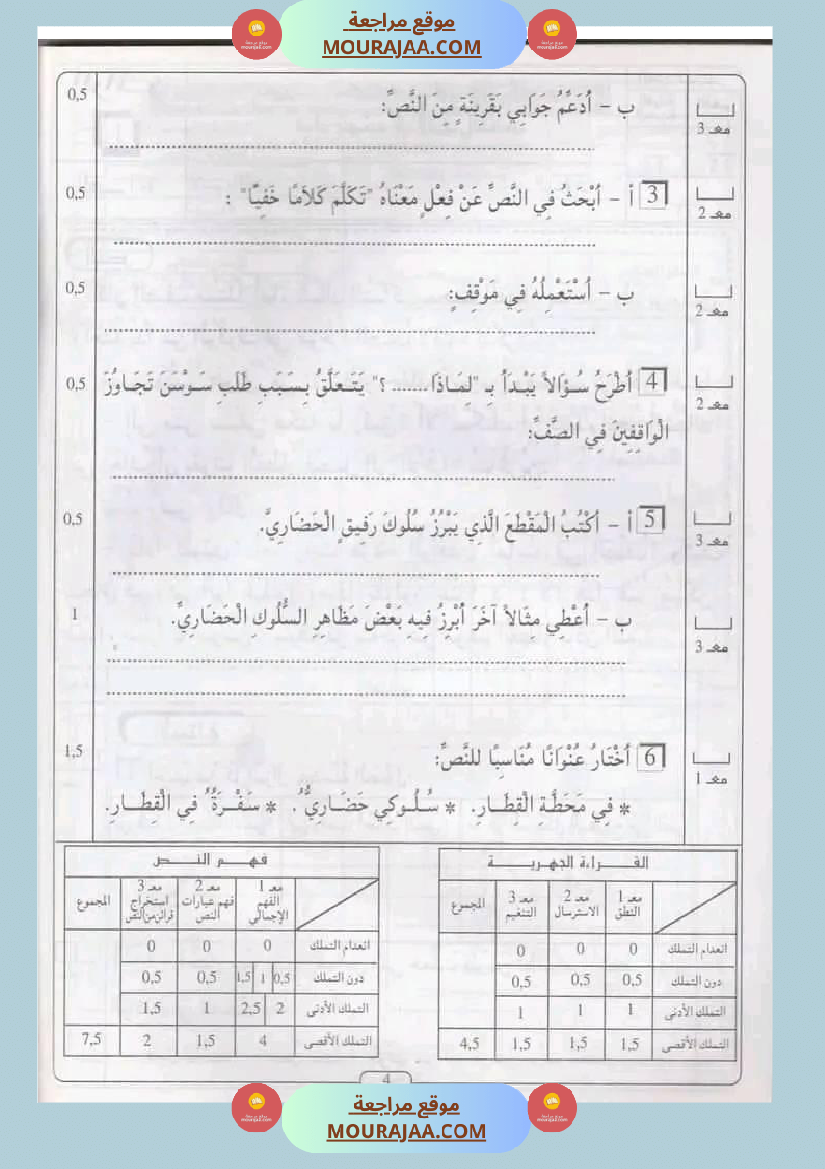 موقع مراجعة
MOURAJAA.COM
0,5
ب - أُدَعِّمُ جَوَابِي بِقَرِينَةٍ مِنَ النَّصِّ:
معـ 3
0,5
3 أ - أَبْحَثُ فِي النَّصِّ عَنْ فِعْلٍ مَعْنَاهُ "تَكَلَّمَ كَلَامًا خَفِيًّا" :
معـ 2
0,5
ب - أَسْتَعْمِلُهُ فِي مَوْقِفٍ:
معـ 2
0,5
4 أَطْرَحُ سُؤَالاً يَبْدَأُ بـ "لِمَاذَا ........ ؟" يَتَعَلَّقُ بِسَبَبِ طَلَبِ سَوْسَنَ تَجَاوُزَ
معـ 2
الْوَاقِفِينَ فِي الصَّفِّ:
0.5
5 أ - أَكْتُبُ الْمَقْطَعَ الَّذِي يَبْرُزُ سُلُوكَ رَفِيقٍ الْحَضَارِيَّ.
معـ 3
1
ب - أُعْطِي مِثَالاً آخَرَ أُبْرِزُ فِيهِ بَعْضَ مَظَاهِرِ السُّلُوكِ الْحَضَارِيِّ.
معـ 3
1,5
6 أَخْتَارُ عُنْوَانًا مُنَاسِبًا للنَّصِّ:
معـ 1
* فِي مَحَطَّةِ الْقِطَارِ. * سُلُوكِي حَضَارِيٌّ. * سَفْرَةٌ فِي الْقِطَارِ.
القراءة الجهرية
معـ 1 النطق معـ 2 الاسترسال معـ 3 التنغيم المجموع
انعدام التملك 0 0 0
دون التملك 0,5 0,5 0,5
التملك الأدنى 1 1 1
التملك الأقصى 1,5 1,5 1,5 4,5
فهم النص
معـ 1 الفهم الإجمالي معـ 2 فهم عبارات النص معـ 3 استخراج قرائن من النص المجموع
انعدام التملك 0 0 0
دون التملك 0,5 1 1,5 0,5 0,5
التملك الأدنى 2 2,5 1 1,5
التملك الأقصى 4 1,5 2 7,5
4
موقع مراجعة
MOURAJAA.COM